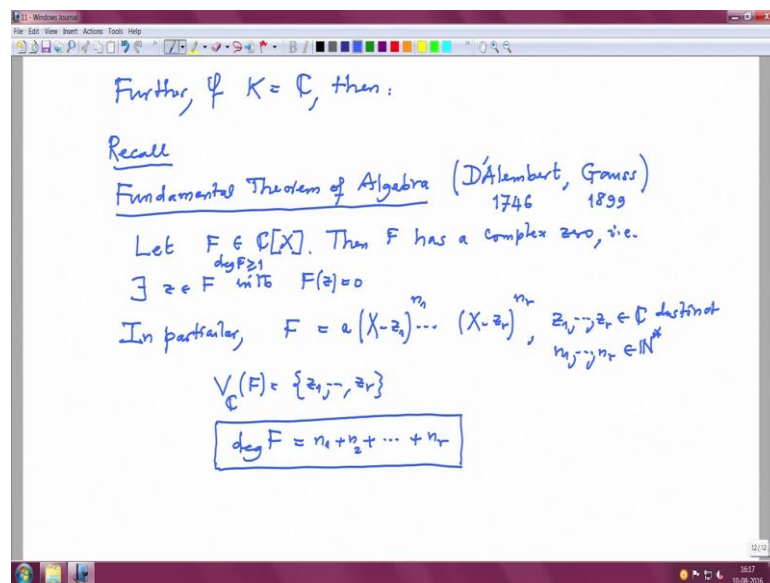 11 - Windows Journal
File Edit View Insert Actions Tools Help
Further, if K = ℂ, then:
Recall
Fundamental Theorem of Algebra (D'Alembert, Gauss)
1746 1899
Let F ∈ ℂ[X]. Then F has a complex zero, i.e.
deg F ≥ 1
∃ z ∈ F with F(z) = 0
In particular, F = a (X-z₁)^n₁ ... (X-zᵣ)^nᵣ, z₁, ..., zᵣ ∈ ℂ distinct
n₁, ..., nᵣ ∈ ℕ*
V_ℂ(F) = {z₁, ..., zᵣ}
deg F = n₁ + n₂ + ... + nᵣ
12/12
16:17
10-08-2016